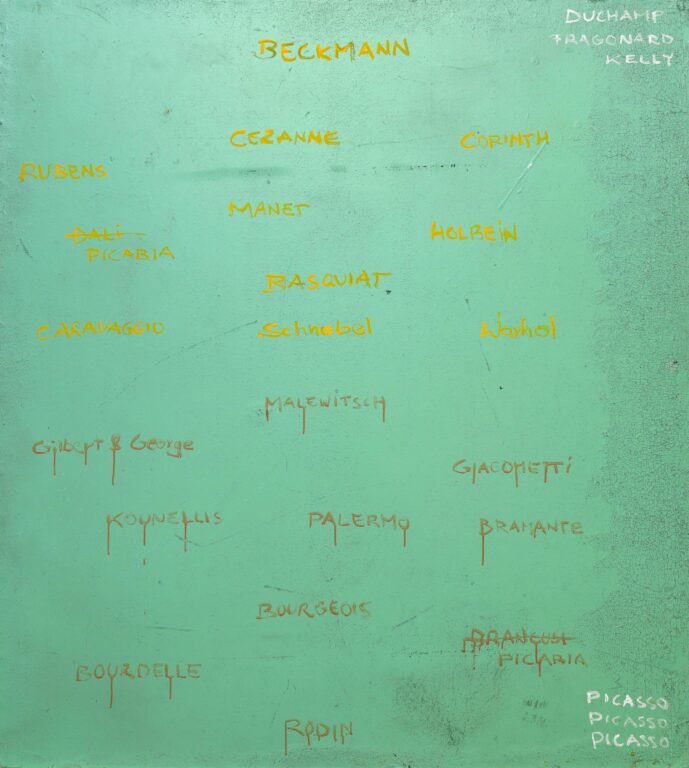 DUCHAMP
FRAGONARD
KELLY
BECKMANN
CEZANNE CORINTH
RUBENS
MANET
DALI HOLBEIN
PICABIA
BASQUIAT
CARAVAGGIO Schnebel Warhol
MALEWITSCH
Gilbert & George
GIACOMETTI
KOUNELLIS PALERMO BRAMANTE
BOURGEOIS
BRANCUSI
PICABIA
BOURDELLE
PICASSO
PICASSO
RODIN
PICASSO